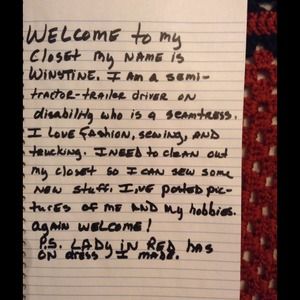 WELCOME to my
Closet my NAME is
WINSTINE. I AM A SEMI-
TRACTOR-TRAILER DRIVER ON
disability who is A SEAMTRESS.
I love FAShion, SEwing, AND
tRucking. I NEED to CLEAN out
my closet so I CAN SEW SOME
NEW Stuff. I,VE posted pic-
tures of ME AND My hobbies.
Again WELCOME!
P.S. LADy iN RED HAS
ON dRESS I MADE.